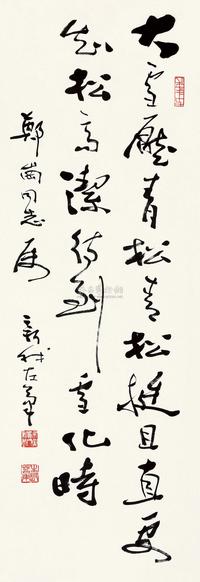 大雪壓青松青松挺且直要
知松高潔待到雪化時
鄭崗同志属
新我左筆